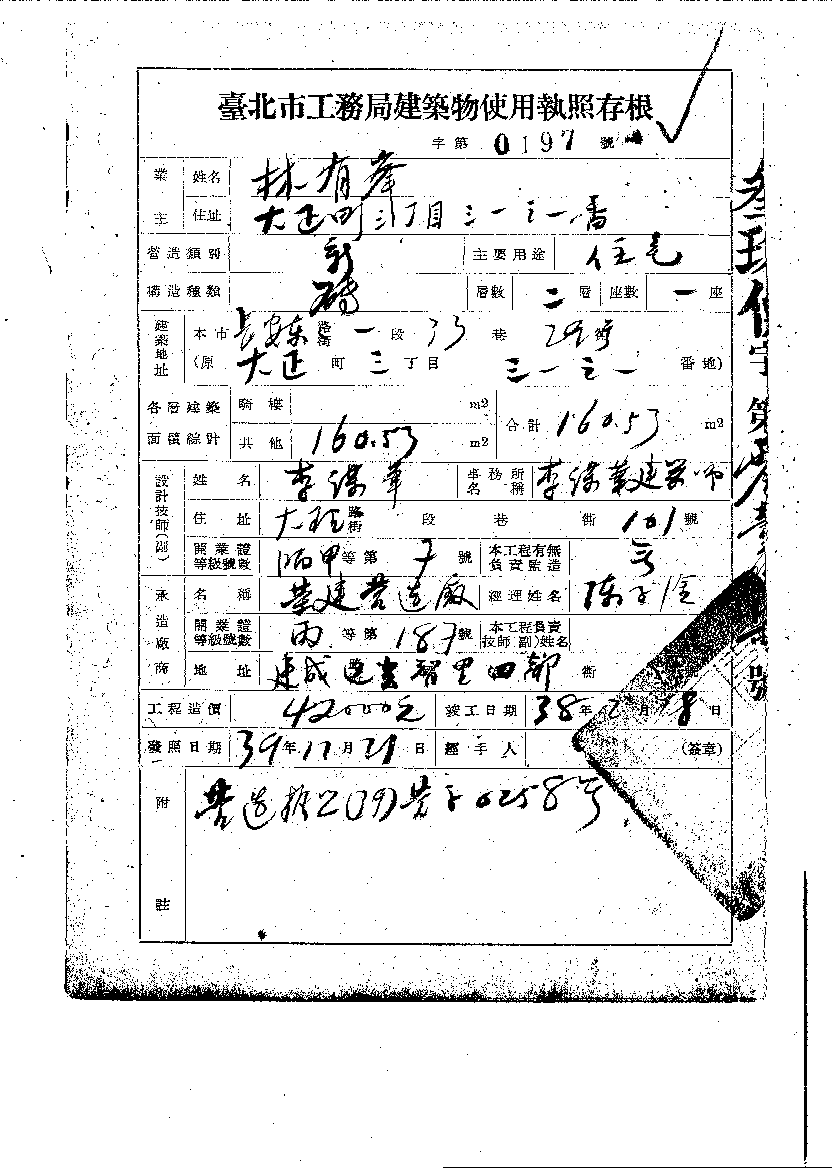 臺北市工務局建築物使用執照存根
字第 0197 號
業主 姓名 林有峯
住址 大正町三丁目三一之一番
營造類別 新 主要用途 住宅
構造種類 磚 層數 二層 座數 一座
建築地址 本市 長安東 路街 一段 33 巷 29號
(原 大正町三丁目 三一之一 番地)
各層建築面積綜計 騎樓 m2 合計 160.53 m2
其他 160.53 m2
設計技師(副) 姓名 李 華 事務所名稱 李 華建築師
住址 路街 段 巷 衖 101 號
開業證等級號數 甲等第 7 號 本工程有無負責監造
承造廠商 名稱 華建營造廠 經理姓名
開業證等級號數 丙等第 187 號 本工程負責技師(副)姓名
地址 建成區 里四鄰 衖
工程造價 42000元 竣工日期 38年 月 8日
發照日期 39年12月21日 經手人 (簽章)
附註 營造執照(39)營字0258號
字第
號